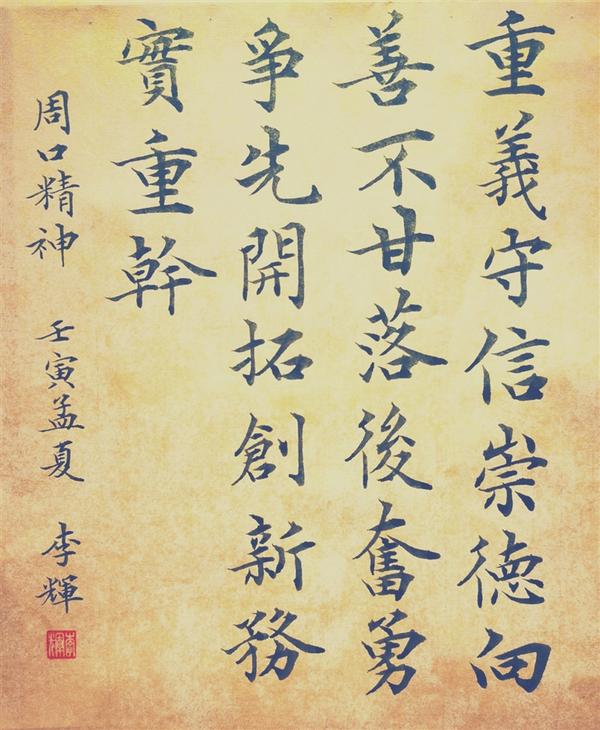 重義守信崇德向
善不甘落後奮勇
爭先開拓創新務
實重幹
周口精神 壬寅孟夏 李輝